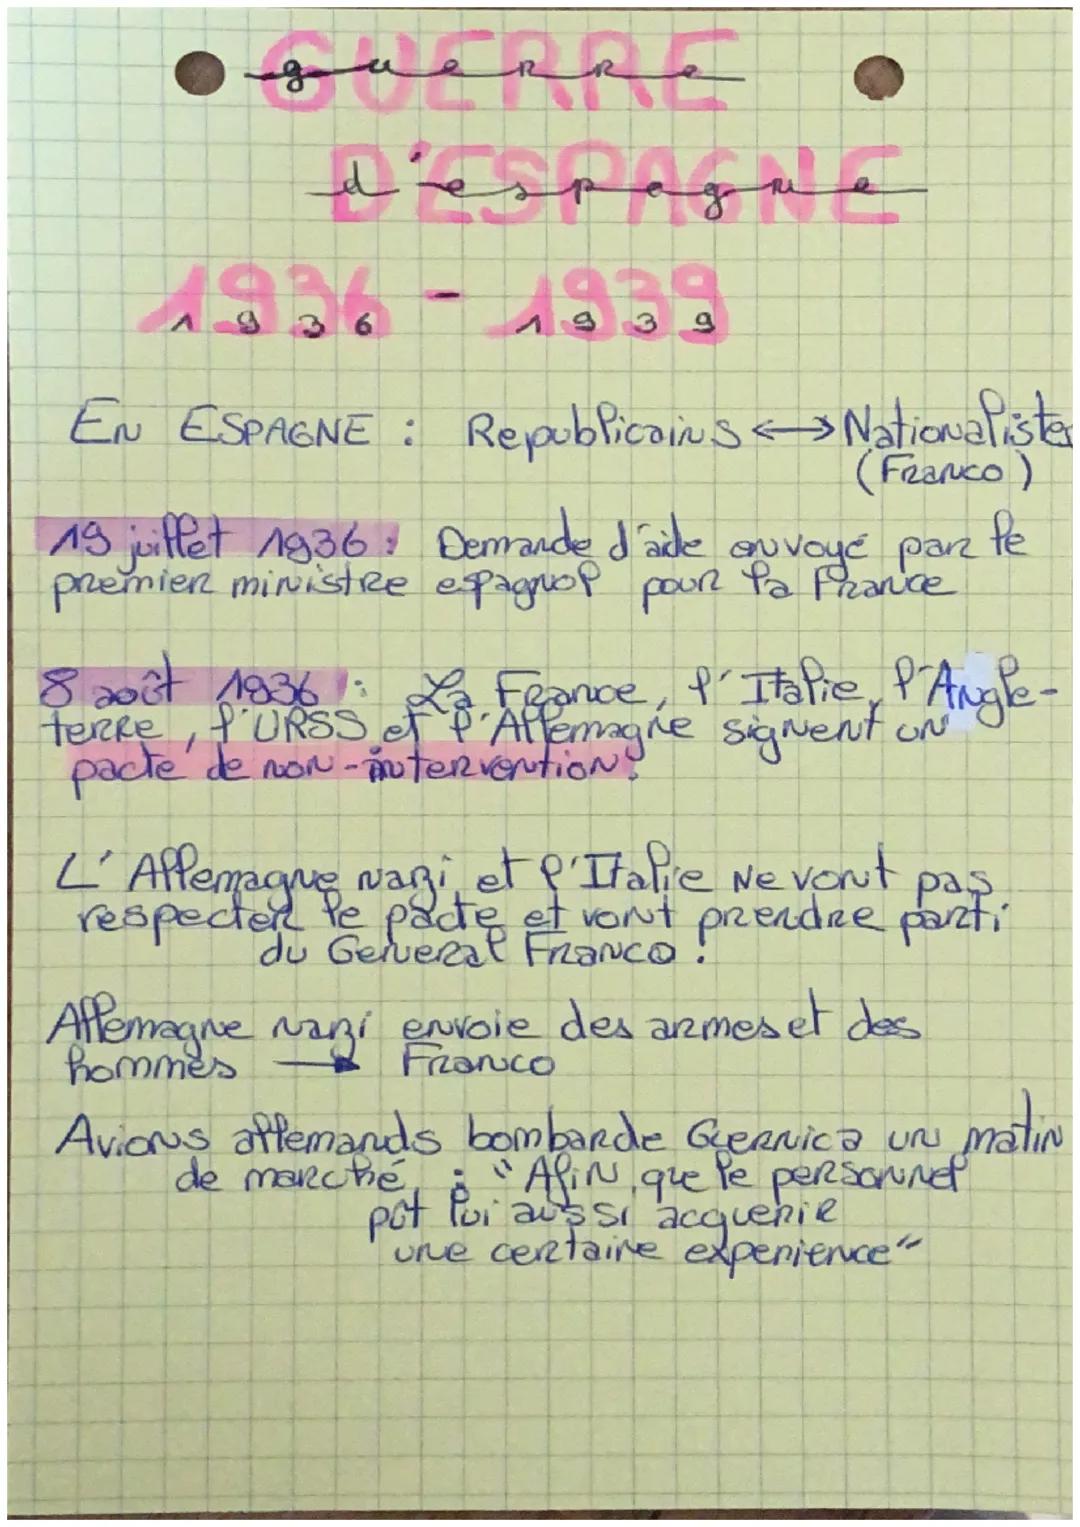 GUERRE
guerre
D'ESPAGNE
d'espagne
1936 - 1939
1936 1939
EN ESPAGNE : Republicains ↔ Nationalistes
(FRANCO)
19 juillet 1936 : Demande d'aide envoyé par le
premier ministre espagnol pour la France
8 août 1936 : La France, l'Italie, l'Angle-
terre, l'URSS et l'Allemagne signent un
pacte de non-intervention.
L'Allemagne nazi et l'Italie ne vont pas
respecter le pacte et vont prendre parti
du General Franco.
Allemagne nazi envoie des armes et des
hommes → Franco
Avions allemands bombarde Guernica un matin
de marché : "Afin que le personnel
pût lui aussi acquerir
une certaine experience"